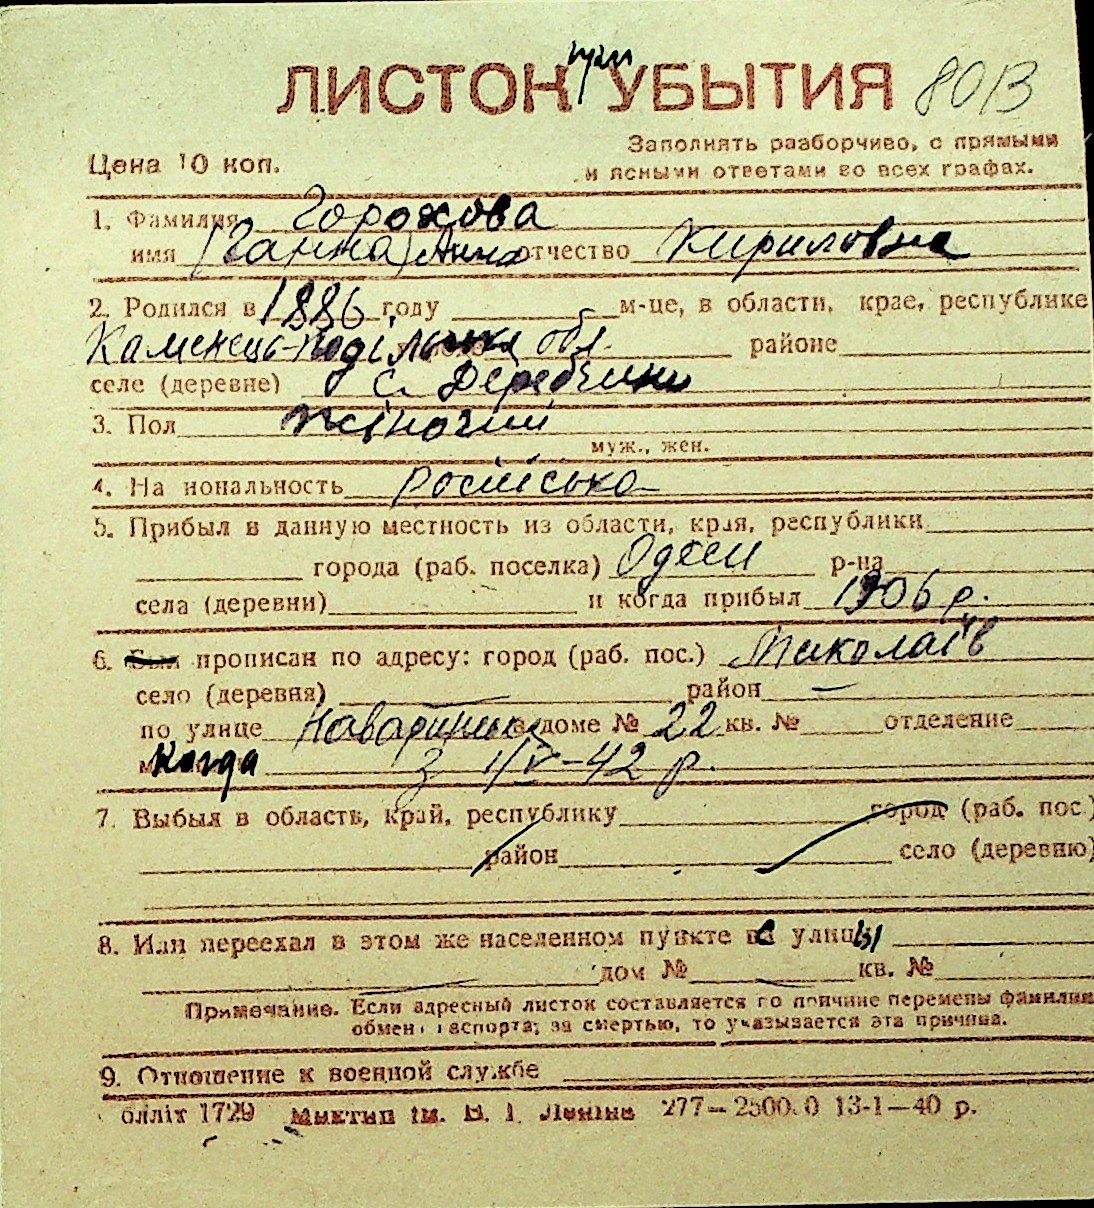 ЛИСТОК при УБЫТИЯ 8013
Цена 10 коп.
Заполнять разборчиво, с прямыми
и ясными ответами во всех графах.
1. Фамилия Горохова
имя (Ганна) Анна отчество Кириловна
2. Родился в 1886 году м-це, в области, крае, республике
Каменець-Подільська обл. районе
селе (деревне) с. Деребчин
3. Пол жіночий
муж., жен.
4. На иональность російська
5. Прибыл в данную местность из области, края, республики
города (раб. поселка) Одеси р-на
села (деревни) и когда прибыл 1906 р.
6. Был прописан по адресу: город (раб. пос.) Миколаїв
село (деревня) — район —
по улице Наваринська доме № 22 кв. № отделение
Когда з 1/V-42 р.
7. Выбыл в область, край, республику город (раб. пос.)
район село (деревню)
8. Или переехал в этом же населенном пункте с улицы
дом № кв. №
Примечание. Если адресный листок составляется по причине перемены фамилии
обмен паспорта; за смертью, то указывается эта причина.
9. Отношение к военной службе
блліт 1729 Миктип ім. В. І. Леніна 277—2500.0 13-1—40 р.